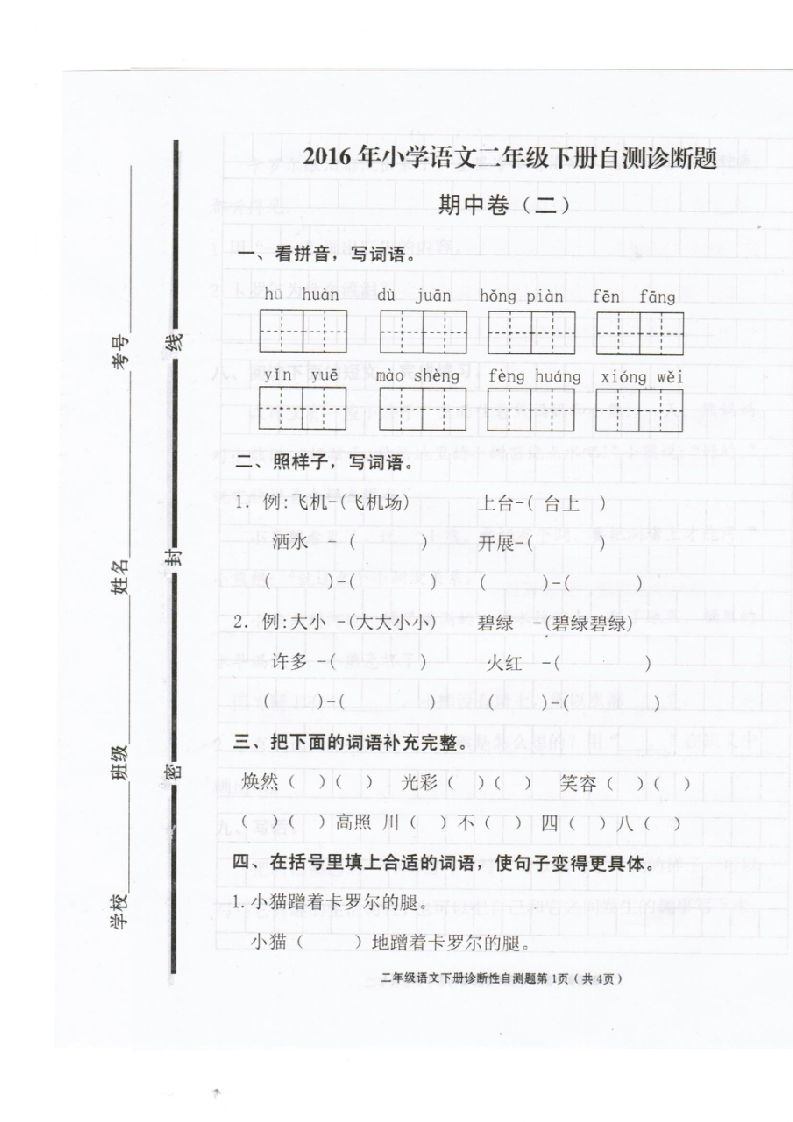 2016年小学语文二年级下册自测诊断题
期中卷（二）
一、看拼音，写词语。
hū huàn dù juān hǒng piàn fēn fāng
yīn yuè mào shèng fèng huáng xióng wěi
二、照样子，写词语。
1. 例:飞机-(飞机场) 上台-( 台上 )
洒水 - ( ) 开展-( )
( )-( ) ( )-( )
2. 例:大小 -(大大小小) 碧绿 -(碧绿碧绿)
许多 -( ) 火红 -( )
( )-( ) ( )-( )
三、把下面的词语补充完整。
焕然（ ）（ ） 光彩（ ）（ ） 笑容（ ）（ ）
（ ）（ ）高照 川（ ）不（ ） 四（ ）八（ ）
四、在括号里填上合适的词语，使句子变得更具体。
1. 小猫蹭着卡罗尔的腿。
小猫（ ）地蹭着卡罗尔的腿。
二年级语文下册诊断性自测题第1页（共4页）
学校 班级 姓名 考号
密 封 线